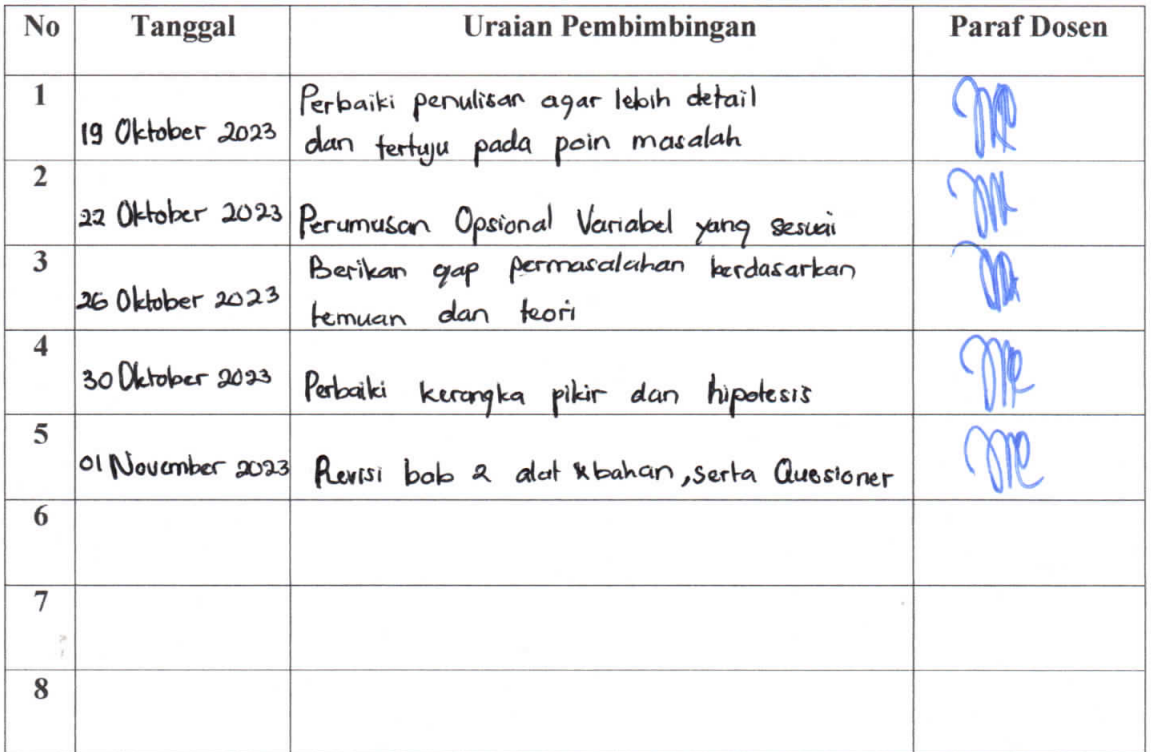 No Tanggal Uraian Pembimbingan Paraf Dosen
1
Perbaiki penulisan agar lebih detail
19 Oktober 2023 dan tertuju pada poin masalah
2
22 Oktober 2023 Perumusan Opsional Variabel yang sesuai
3
Berikan gap permasalahan berdasarkan
26 Oktober 2023 temuan dan teori
4
30 Oktober 2023 Perbaiki kerangka pikir dan hipotesis
5
01 November 2023 Revisi bab 2 alat & bahan, serta Quesioner
6
7
8